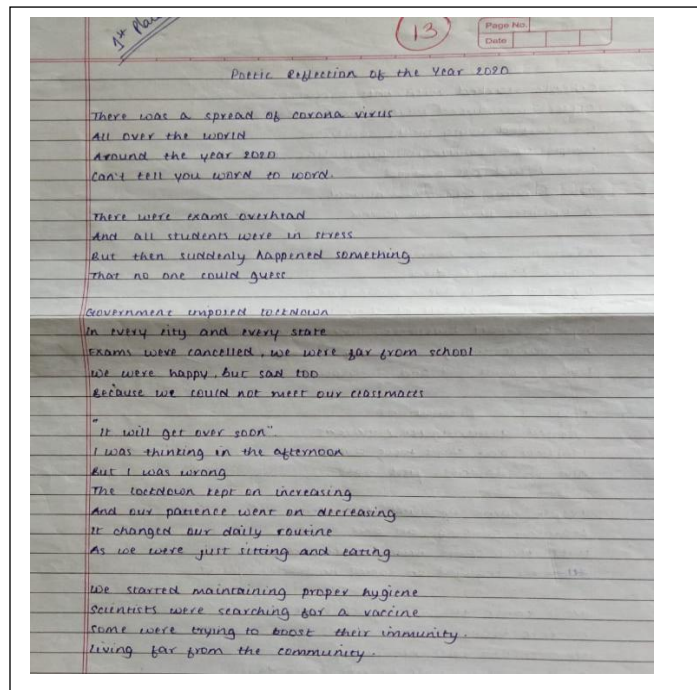 1st Place
13
Page No.
Date
Poetic Reflection of the Year 2020
There was a spread of corona virus
All over the world
Around the year 2020
Can't tell you word to word.
There were exams overhead
And all students were in stress
But then suddenly happened something
That no one could guess
Government imposed lockdown
In every city and every state
Exams were cancelled, we were far from school
We were happy, but sad too
Because we could not meet our classmates
"It will get over soon"
I was thinking in the afternoon
But I was wrong
The lockdown kept on increasing
And our patience went on decreasing
It changed our daily routine
As we were just sitting and eating
We started maintaining proper hygiene
Scientists were searching for a vaccine
Some were trying to boost their immunity.
Living far from the community.